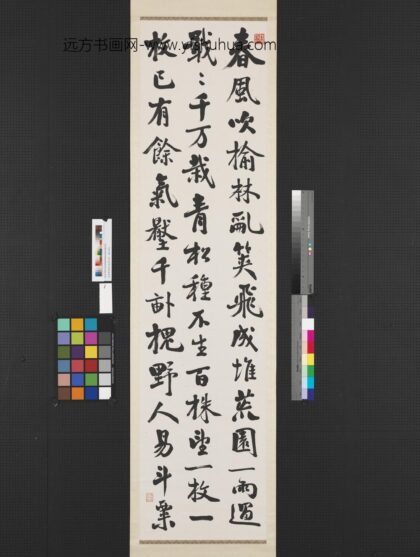 远方书画网-www.yfshuhua.com
春風吹榆林亂莢飛成堆荒園一雨過
戢〻千万栽青松種不生百株望一枚一
枚已有餘氣壓千畝槐野人易斗粟